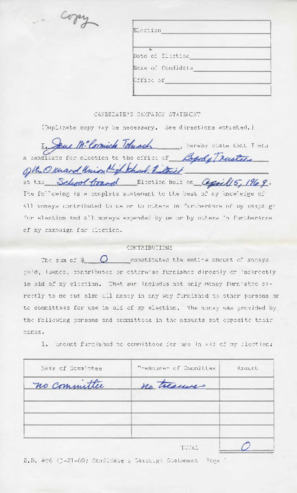 Copy
Election
Date of Election
Name of Candidate
Office of
CANDIDATE'S CAMPAIGN STATEMENT
(Duplicate copy may be necessary. See directions attached.)
I, Jane McCormick Tolmach, hereby state that I was
a candidate for election to the office of Trustee
of the Oxnard Union High School District
at the School Board Election held on April 15, 1969.
The following is a complete statement to the best of my knowledge of
all moneys contributed to me or to others in furtherance of my campaign
for election and all moneys expended by me or by others in furtherance
of my campaign for election.
CONTRIBUTIONS
The sum of $ 0 constituted the entire amount of moneys
paid, loaned, contributed or otherwise furnished directly or indirectly
in aid of my election. That sum includes not only money furnished di-
rectly to me but also all money in any way furnished to other persons or
to committees for use in aid of my election. The money was provided by
the following persons and committees in the amounts set opposite their
names.
1. Amount furnished to committees for use in aid of my election.
Name of Committee Treasurer of Committee Amount
no committee no treasurer
TOTAL 0
Candidate's Campaign Statement Page 1